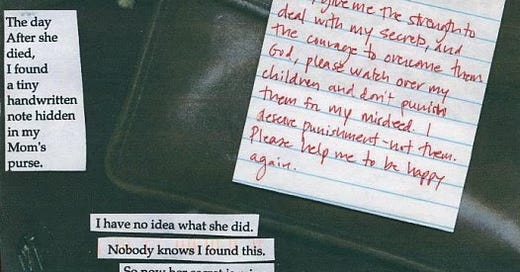 The day
After she
died,
I found
a tiny
handwritten
note hidden
in my
Mom's
purse.
give me the strength to
deal with my secrets, and
the courage to overcome them
God, please watch over my
children and don't punish
them for my misdeed. I
deserve punishment-not them.
Please help me to be happy
again.
I have no idea what she did.
Nobody knows I found this.
So now her secret is